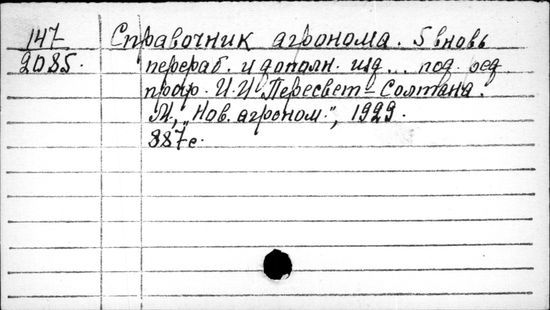 147
2085.
Справочник агронома. 5 вновь
перераб. и дополн. изд... под. ред.
проф. И. И. Пересвет-Солтана.
М., „Нов. агроном.", 1929.
887 с.